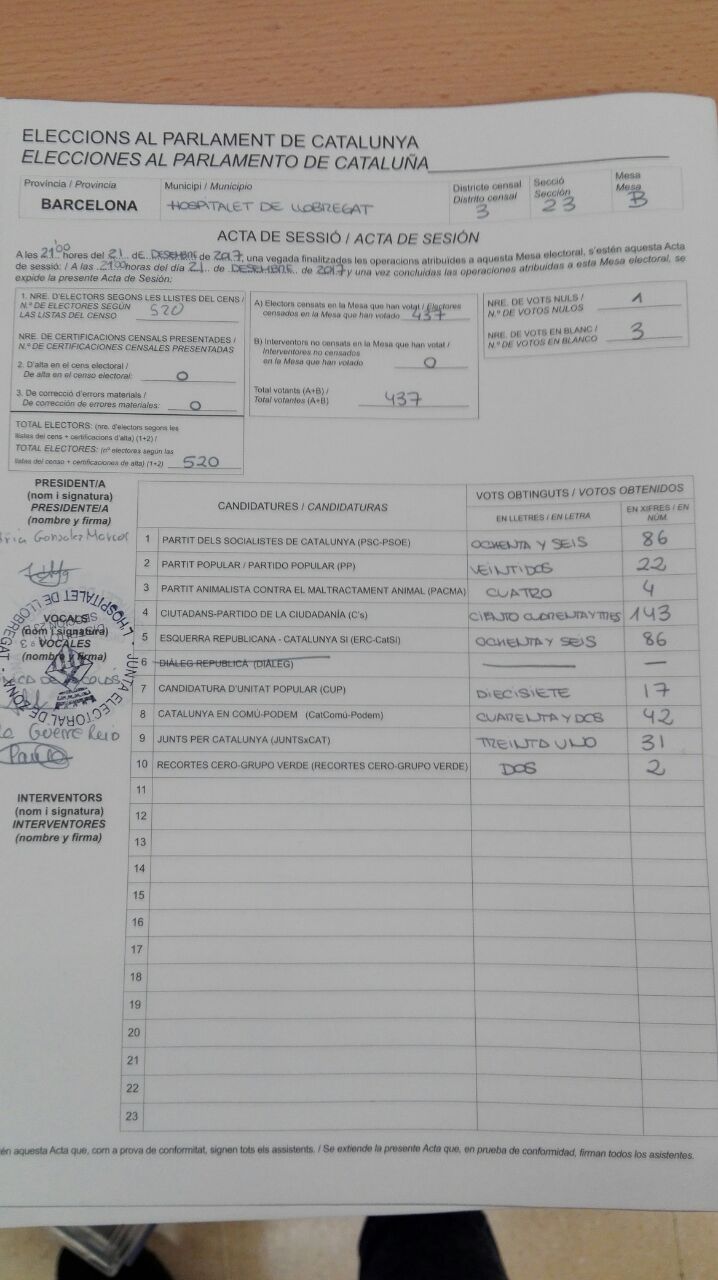 ELECCIONS AL PARLAMENT DE CATALUNYA
ELECCIONES AL PARLAMENTO DE CATALUÑA
Província / Provincia
BARCELONA
Municipi / Municipio
HOSPITALET DE LLOBREGAT
Districte censal
Distrito censal
3
Secció
Sección
23
Mesa
Mesa
B
ACTA DE SESSIÓ / ACTA DE SESIÓN
A les 21'00 hores del 21 de DESEMBRE de 2017, una vegada finalitzades les operacions atribuïdes a aquesta Mesa electoral, s'estén aquesta Acta
de sessió: / A las 21'00 horas del día 21 de DESEMBRE de 2017 y una vez concluidas las operaciones atribuidas a esta Mesa electoral, se
expide la presente Acta de Sesión:
1. NRE. D'ELECTORS SEGONS LES LLISTES DEL CENS /
N.º DE ELECTORES SEGÚN
LAS LISTAS DEL CENSO 520
NRE. DE CERTIFICACIONS CENSALS PRESENTADES /
N.º DE CERTIFICACIONES CENSALES PRESENTADAS
2. D'alta en el cens electoral /
De alta en el censo electoral: 0
3. De correcció d'errors materials /
De corrección de errores materiales: 0
TOTAL ELECTORS: (nre. d'electors segons les
llistes del cens + certificacions d'alta) (1+2) /
TOTAL ELECTORES: (nº electores según las
listas del censo + certificaciones de alta) (1+2) 520
A) Electors censats en la Mesa que han votat / Electores
censados en la Mesa que han votado 437
B) Interventors no censats en la Mesa que han votat /
Interventores no censados
en la Mesa que han votado 0
Total votants (A+B) /
Total votantes (A+B) 437
NRE. DE VOTS NULS /
N.º DE VOTOS NULOS 1
NRE. DE VOTS EN BLANC /
N.º DE VOTOS EN BLANCO 3
PRESIDENT/A
(nom i signatura)
PRESIDENTE/A
(nombre y firma)
Gonzalez Marcos
VOCALS
(nom i signatura)
VOCALES
(nombre y firma)
JUNTA ELECTORAL DE ZONA - L'HOSPITALET DE LLOBREGAT
INTERVENTORS
(nom i signatura)
INTERVENTORES
(nombre y firma)
CANDIDATURES / CANDIDATURAS
VOTS OBTINGUTS / VOTOS OBTENIDOS
EN LLETRES / EN LETRA
EN XIFRES / EN NÚM.
1 PARTIT DELS SOCIALISTES DE CATALUNYA (PSC-PSOE) OCHENTA Y SEIS 86
2 PARTIT POPULAR / PARTIDO POPULAR (PP) VEINTIDOS 22
3 PARTIT ANIMALISTA CONTRA EL MALTRACTAMENT ANIMAL (PACMA) CUATRO 4
4 CIUTADANS-PARTIDO DE LA CIUDADANÍA (C's) CIENTO CUARENTA Y TRES 143
5 ESQUERRA REPUBLICANA - CATALUNYA SI (ERC-CatSI) OCHENTA Y SEIS 86
6 DIÀLEG REPÚBLICA (DIÀLEG) — —
7 CANDIDATURA D'UNITAT POPULAR (CUP) DIECISIETE 17
8 CATALUNYA EN COMÚ-PODEM (CatComú-Podem) CUARENTA Y DOS 42
9 JUNTS PER CATALUNYA (JUNTSxCAT) TREINTA UNO 31
10 RECORTES CERO-GRUPO VERDE (RECORTES CERO-GRUPO VERDE) DOS 2
11
12
13
14
15
16
17
18
19
20
21
22
23
én aquesta Acta que, com a prova de conformitat, signen tots els assistents. / Se extiende la presente Acta que, en prueba de conformidad, firman todos los asistentes.